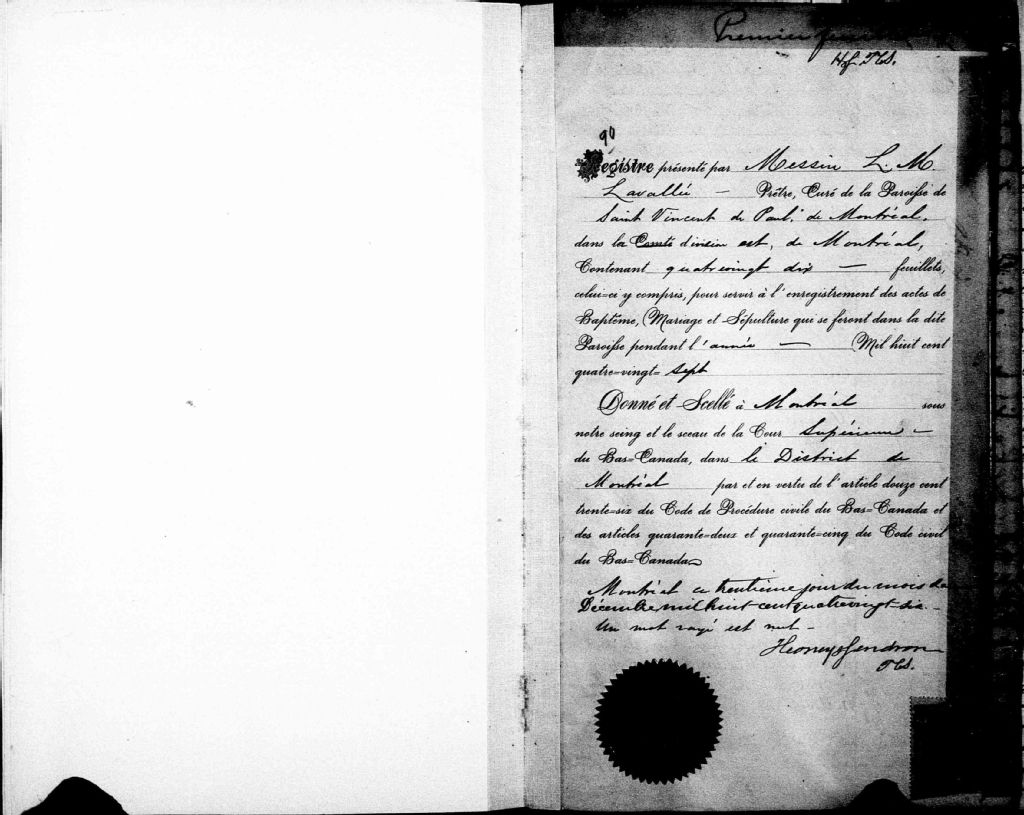 Premier
H.G. P.C.S.
90
Registre présenté par Messire L. M.
Lavallée — Prêtre, Curé de la Paroisse de
Saint Vincent de Paul, de Montréal,
dans la Comté division est, de Montréal,
Contenant quatrevingt dix — feuillets,
celui=ci y compris, pour servir à l'enregistrement des actes de
Baptême, Mariage et Sépulture qui se feront dans la dite
Paroisse pendant l'année — Mil huit cent
quatre=vingt= sept
Donné et Scellé à Montréal sous
notre seing et le sceau de la Cour Supérieure —
du Bas=Canada, dans le District de
Montréal par et en vertu de l'article douze cent
trente=six du Code de Procédure civile du Bas=Canada et
des articles quarante=deux et quarante=cinq du Code civil
du Bas=Canada
Montréal ce trentième jour du mois de
Décembre mil huit cent quatrevingt six —
Un mot rayé est nul —
Gendron
P.C.S.